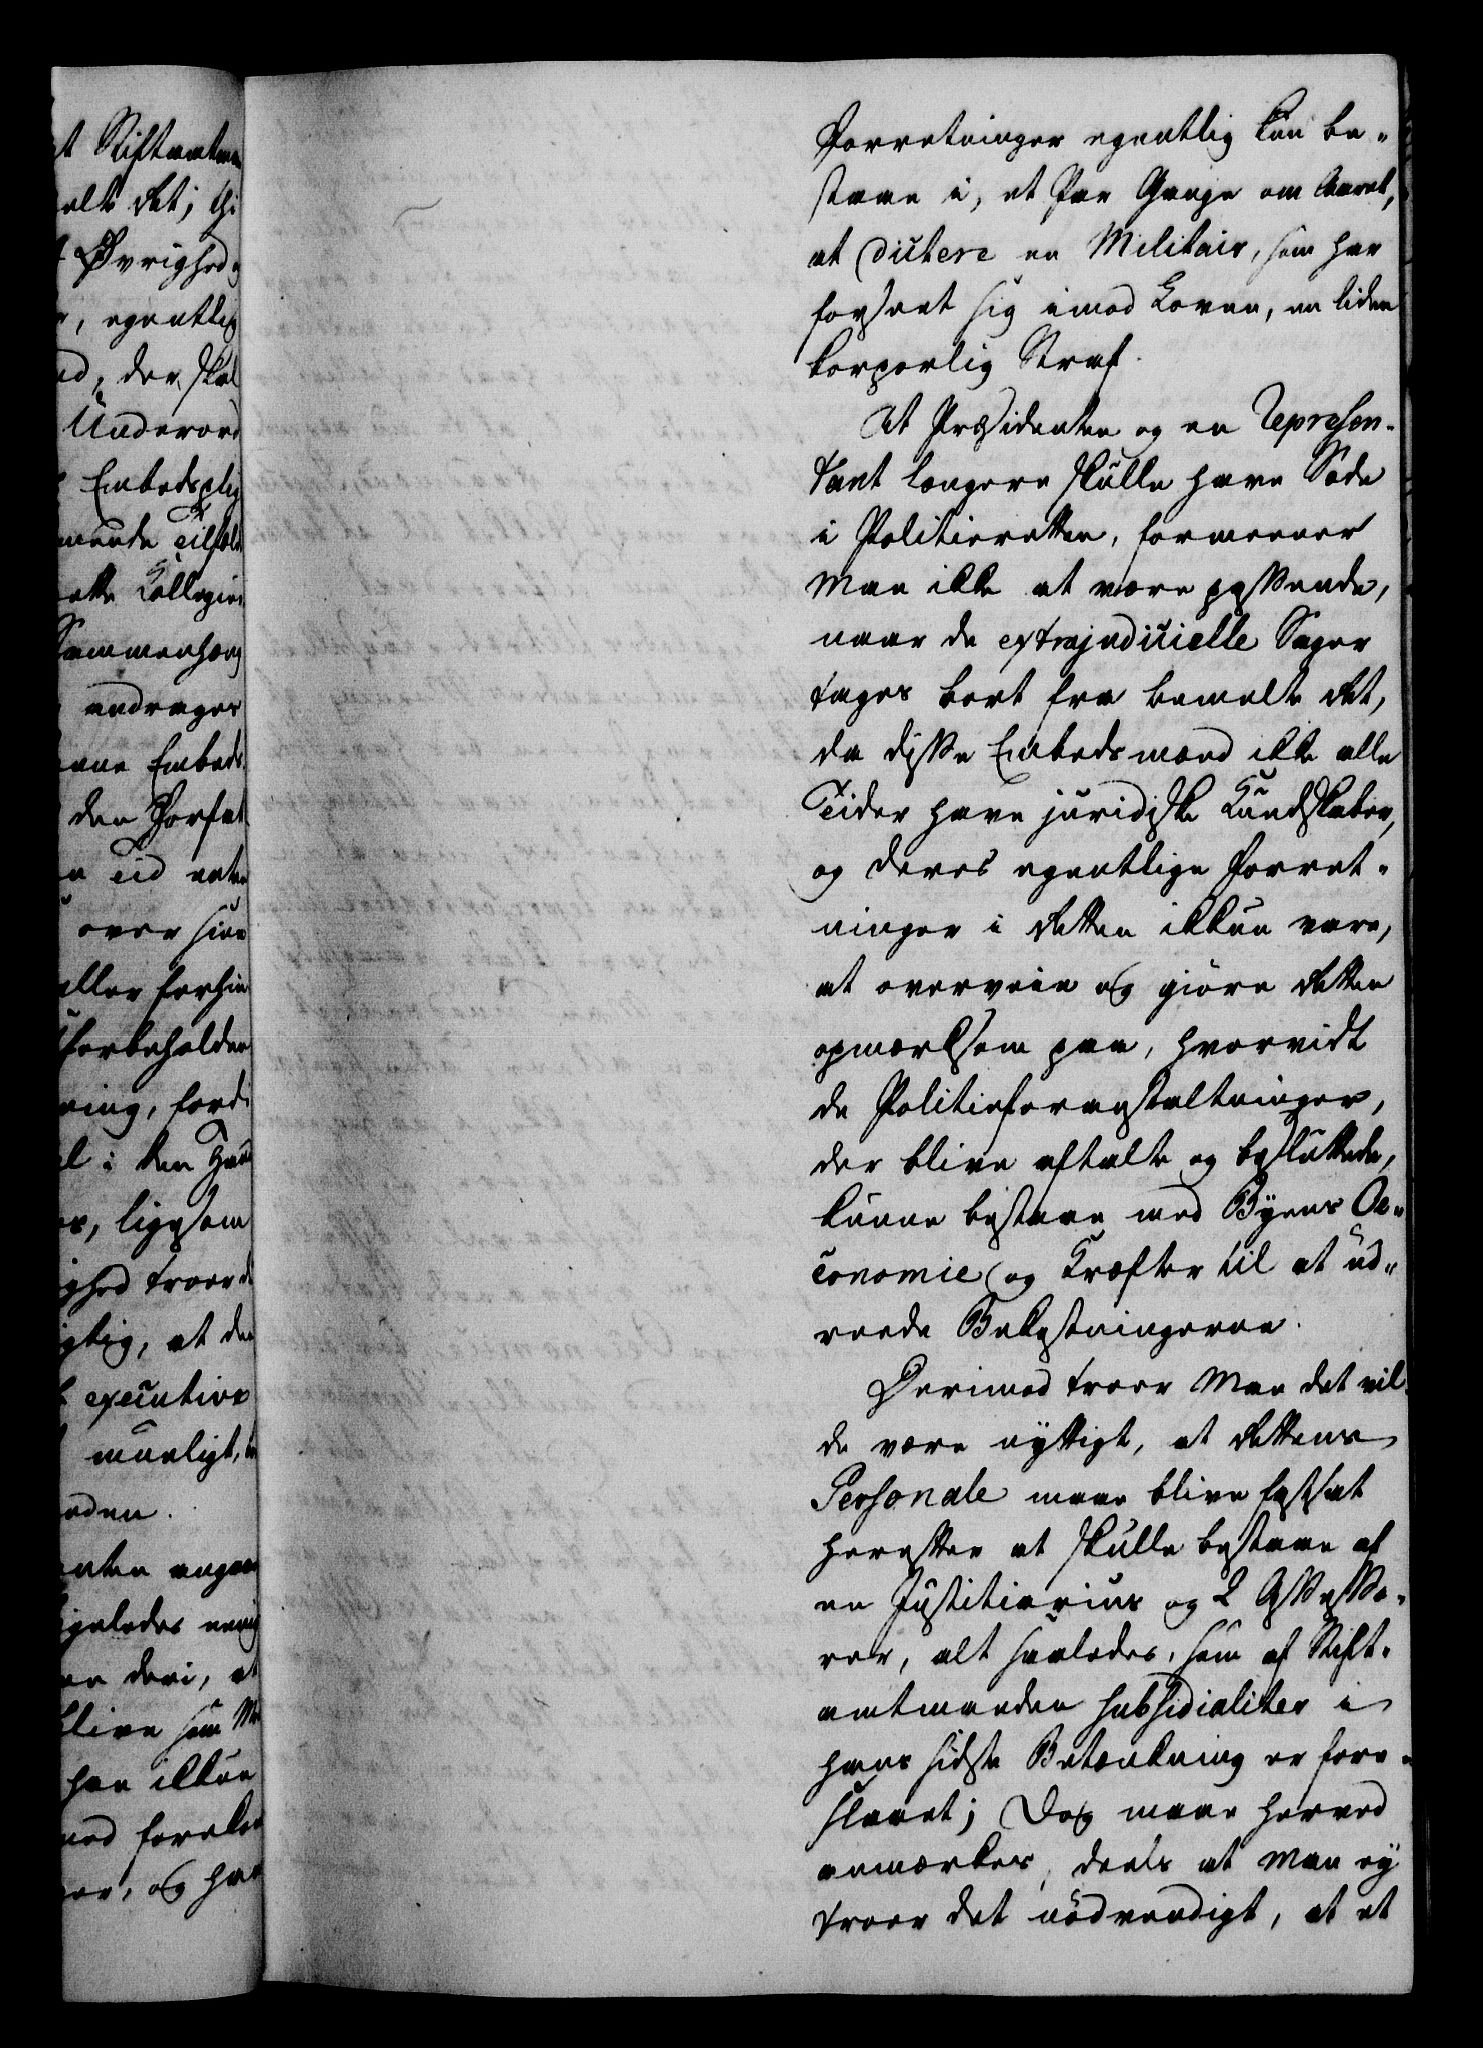 t Stiftamtm
elte Ret; thi
Øvrighed
, egentlig
ed, der skal
Underord
Embedsplig
mende Tilfæl
ette Collegiu
Sammenhæng
andrages
ene Embeds
den Forfat
n Tid efter
over sine
eller forhin
forbeholden
ning, fordi
el i den Hen
es, ligesom
ghed troer
gtig, at den
executive
mueligt,
eden.
nten angaae
igeledes enig
er deri, at
blive som
han ikkun
med
er, og har
Forretninger egentlig kun be-
staae i, et Par Gange om Aaret,
at dictere en Militair, som har
forseet sig imod Loven, en liden
korporlig Straf.
At Præsidenten og en Repræsen-
tant længere skulle have Sæde
i Politieretten, formeener
Man ikke at være passende,
naar de extrajudicielle Sager
tages bort fra bemelte Ret,
da disse Embedsmænd ikke alle
Tider have juridiske Kundskaber,
og deres egentlige Forret-
ninger i Retten ikkun vare,
at overveie og giøre Retten
opmærksom paa, hvorvidt
de Politieforanstaltninger,
der blive aftalte og besluttede,
kunne bestaae med Byens Oe-
conomie og Kræfter til at ud-
reede Bekostningerne.
Derimod troer Man det vil-
de være nyttigt, at Rettens
Personale maae blive fastsat
herefter at skulle bestaae af
en Justitiarius og 2 Assesso-
rer, alt saaledes, som af Stift-
amtmanden subsidialiter i
hans sidste Betænkning er fore-
slaaet; Dog maae herved
anmærkes, deels at Man ey
troer det nødvendigt, at et